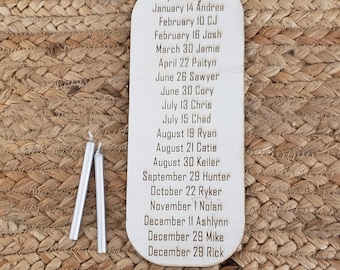 January 14 Andrea
February 10 CJ
February 16 Josh
March 30 Jamie
April 22 Paityn
June 26 Sawyer
June 30 Cory
July 13 Chris
July 15 Chad
August 19 Ryan
August 21 Catie
August 30 Keiler
September 29 Hunter
October 22 Ryker
November 1 Nolan
December 11 Ashlynn
December 29 Mike
December 29 Rick